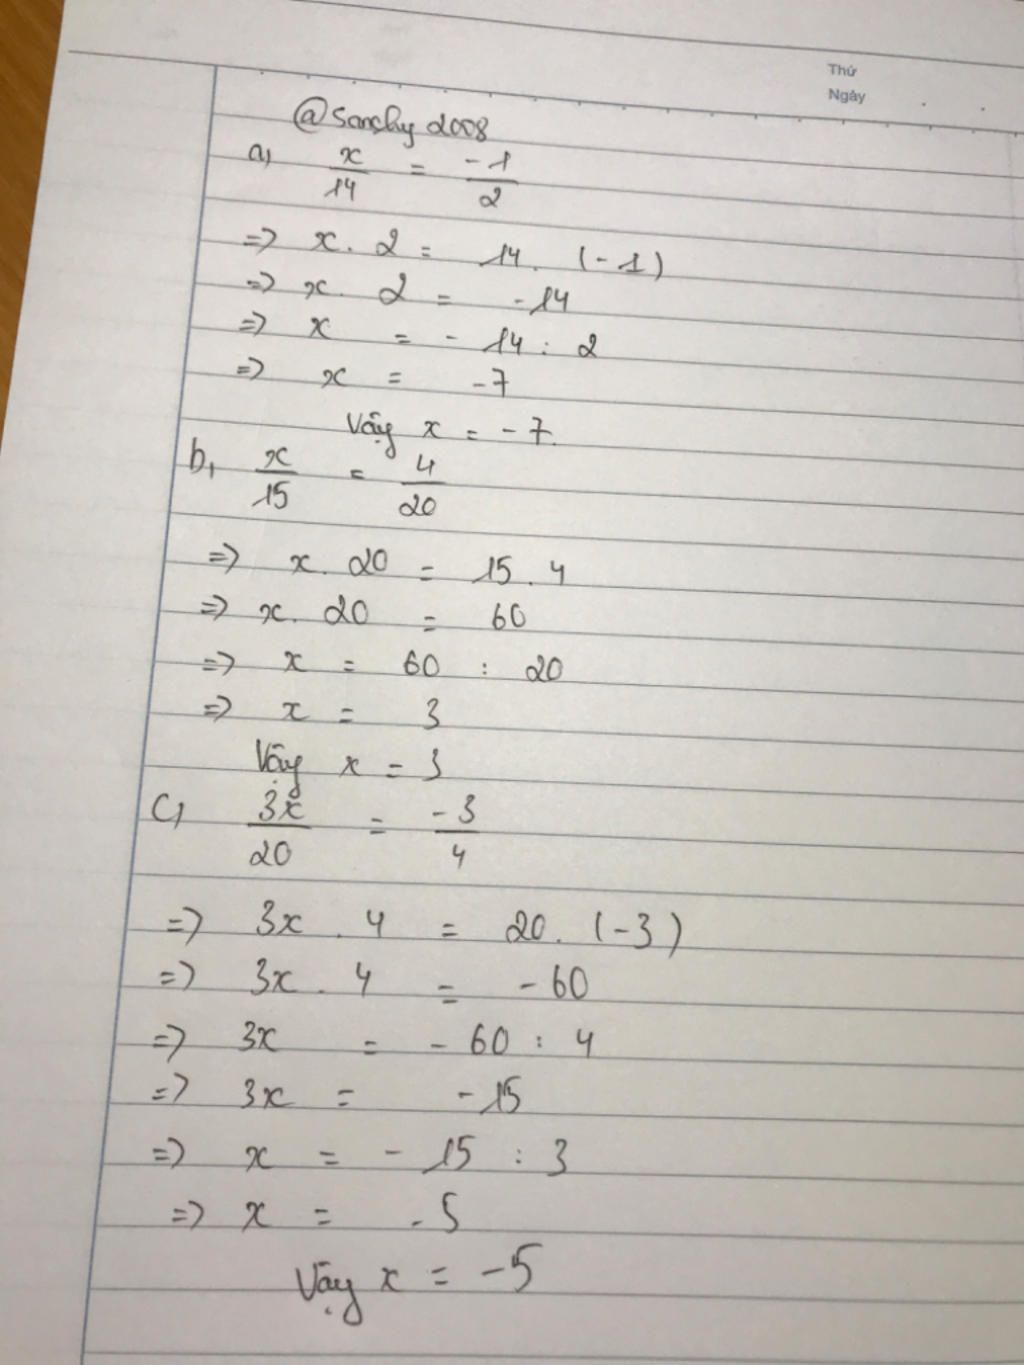 Thứ
Ngày
@Sanchy2008
a, x/14 = -1/2
=> x. 2 = 14. (-1)
=> x. 2 = -14
=> x = - 14 : 2
=> x = -7
Vậy x = -7.
b, x/15 = 4/20
=> x. 20 = 15. 4
=> x. 20 = 60
=> x = 60 : 20
=> x = 3
Vậy x = 3
c, 3x/20 = -3/4
=> 3x . 4 = 20. (-3)
=> 3x . 4 = -60
=> 3x = - 60 : 4
=> 3x = -15
=> x = - 15 : 3
=> x = -5
Vậy x = -5